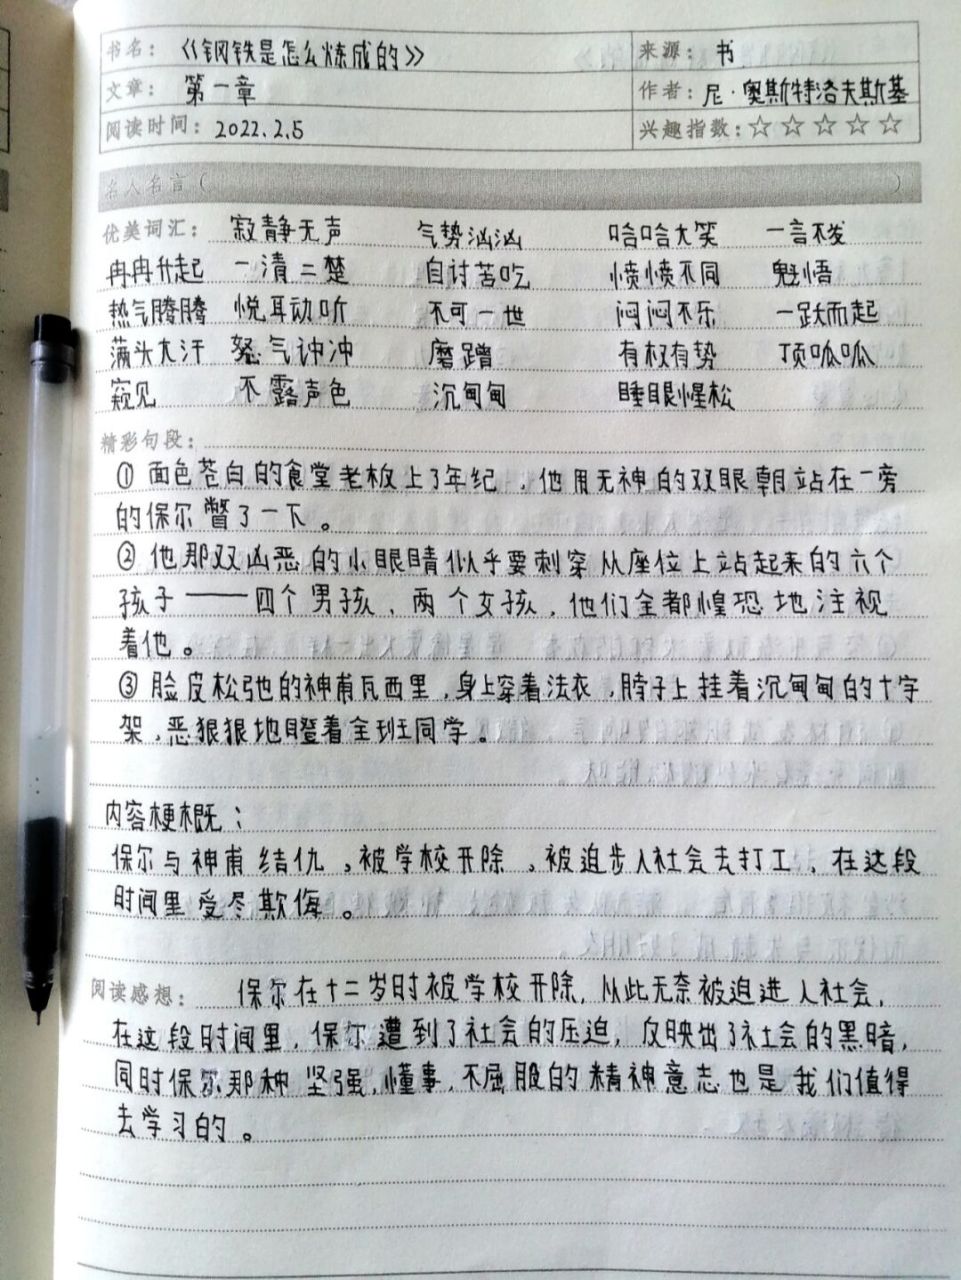 书名：《钢铁是怎么炼成的》 来源：书
文章：第一章 作者：尼·奥斯特洛夫斯基
阅读时间：2022.2.5 兴趣指数：☆☆☆☆☆
名人名言（ ）
优美词汇：寂静无声 气势汹汹 哈哈大笑 一言不发
冉冉升起 一清二楚 自讨苦吃 愤愤不同 魁悟
热气腾腾 悦耳动听 不可一世 闷闷不乐 一跃而起
满头大汗 怒气冲冲 磨蹭 有权有势 顶呱呱
窥见 不露声色 沉甸甸 睡眼惺松
精彩句段：
① 面色苍白的食堂老板上了年纪，他用无神的双眼朝站在一旁
的保尔瞥了一下。
② 他那双凶恶的小眼睛似乎要刺穿从座位上站起来的六个
孩子——四个男孩、两个女孩，他们全都惶恐地注视
着他。
③ 脸皮松弛的神甫瓦西里，身上穿着法衣，脖子上挂着沉甸甸的十字
架，恶狠狠地瞪着全班同学。
内容梗概：
保尔与神甫结仇，被学校开除，被迫步入社会去打工，在这段
时间里受尽欺侮。
阅读感想：保尔在十二岁时被学校开除，从此无奈被迫进入社会，
在这段时间里，保尔遭到了社会的压迫，反映出了社会的黑暗，
同时保尔那种坚强，懂事，不屈服的精神意志也是我们值得
去学习的。